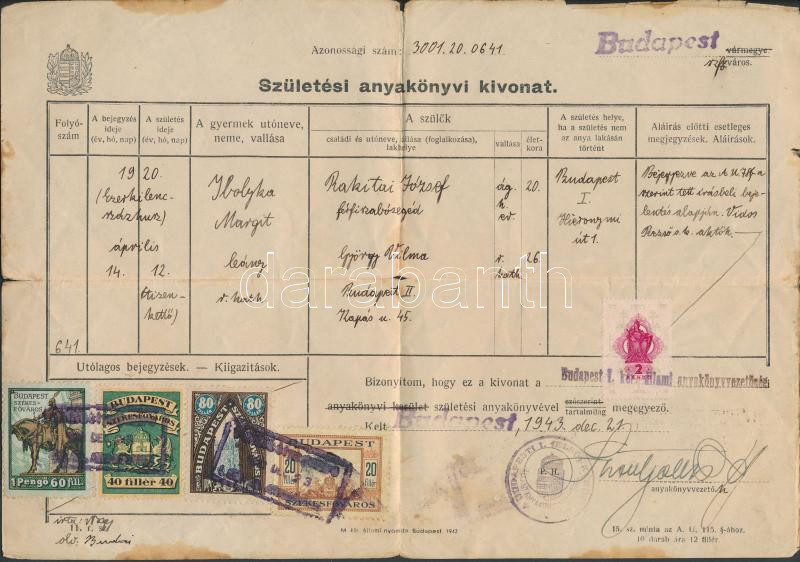 Azonossági szám: 3001.20.0641.
Budapest vármegye.
város.
Születési anyakönyvi kivonat.
Folyó-
szám
A bejegyzés
ideje
(év, hó, nap)
A születés
ideje
(év, hó, nap)
A gyermek utóneve,
neme, vallása
A szülők
családi és utóneve, állása (foglalkozása),
lakhelye
vallása
élet-
kora
A születés helye,
ha a születés nem
az anya lakásán
történt
Aláírás előtti esetleges
megjegyzések. Aláírások.
641.
1920.
(Ezerkilenc-
százhusz)
április
14. 12.
(tizen-
kettő)
Ibolyka
Margit
leány
r. kath
Rakitai József
férfiszabósegéd
ág.
h.
ev.
20.
György Vilma
r.
kath.
26.
Budapest II.
Kapás u. 45.
Budapest
I.
Hieronymi
út 1.
Bejegyezve az A. U. 78§-a
szerint tett írásbeli beje-
lentés alapján. Vidos
Rezső s. k. aktők.
darabanth
Utólagos bejegyzések. — Kiigazítások.
2
Bizonyítom, hogy ez a kivonat a Budapest I. ker. állami anyakönyvvezetőség
anyakönyvi kerület születési anyakönyvével szószerint
tartalmilag megegyező.
Kelt Budapest, 1943. dec. 21.
P. H.
anyakönyvvezető
BUDAPEST
SZÉKES-
FŐVÁROS
1 Pengő 60 fill.
BUDAPEST
SZÉKESFŐVÁROS
40 fillér 40
80 80
BUDAPEST
BUDAPEST
20
fillér
20
fillér
SZÉKESFŐVÁROS
M. kir. állami nyomda. Budapest, 1942
15. sz. minta az A. U. 115. §-ához.
10 darab ára 12 fillér.